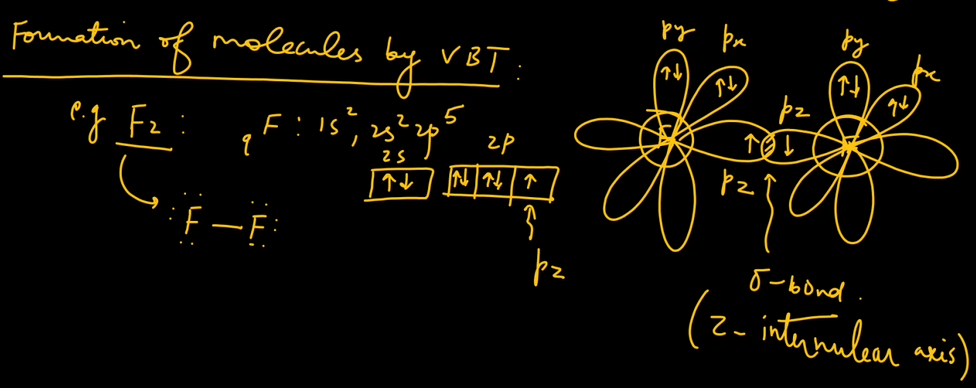 Formation of molecules by VBT :
e.g F2 : 9F : 1s2, 2s2 2p5
2s 2p
↑↓ ↑↓ ↑↓ ↑
pz
:F — F:
py px py px
↑↓ ↑↓ ↑↓ ↑↓
F pz F
↑ ↓
pz
σ-bond.
(Z - internulear axis)